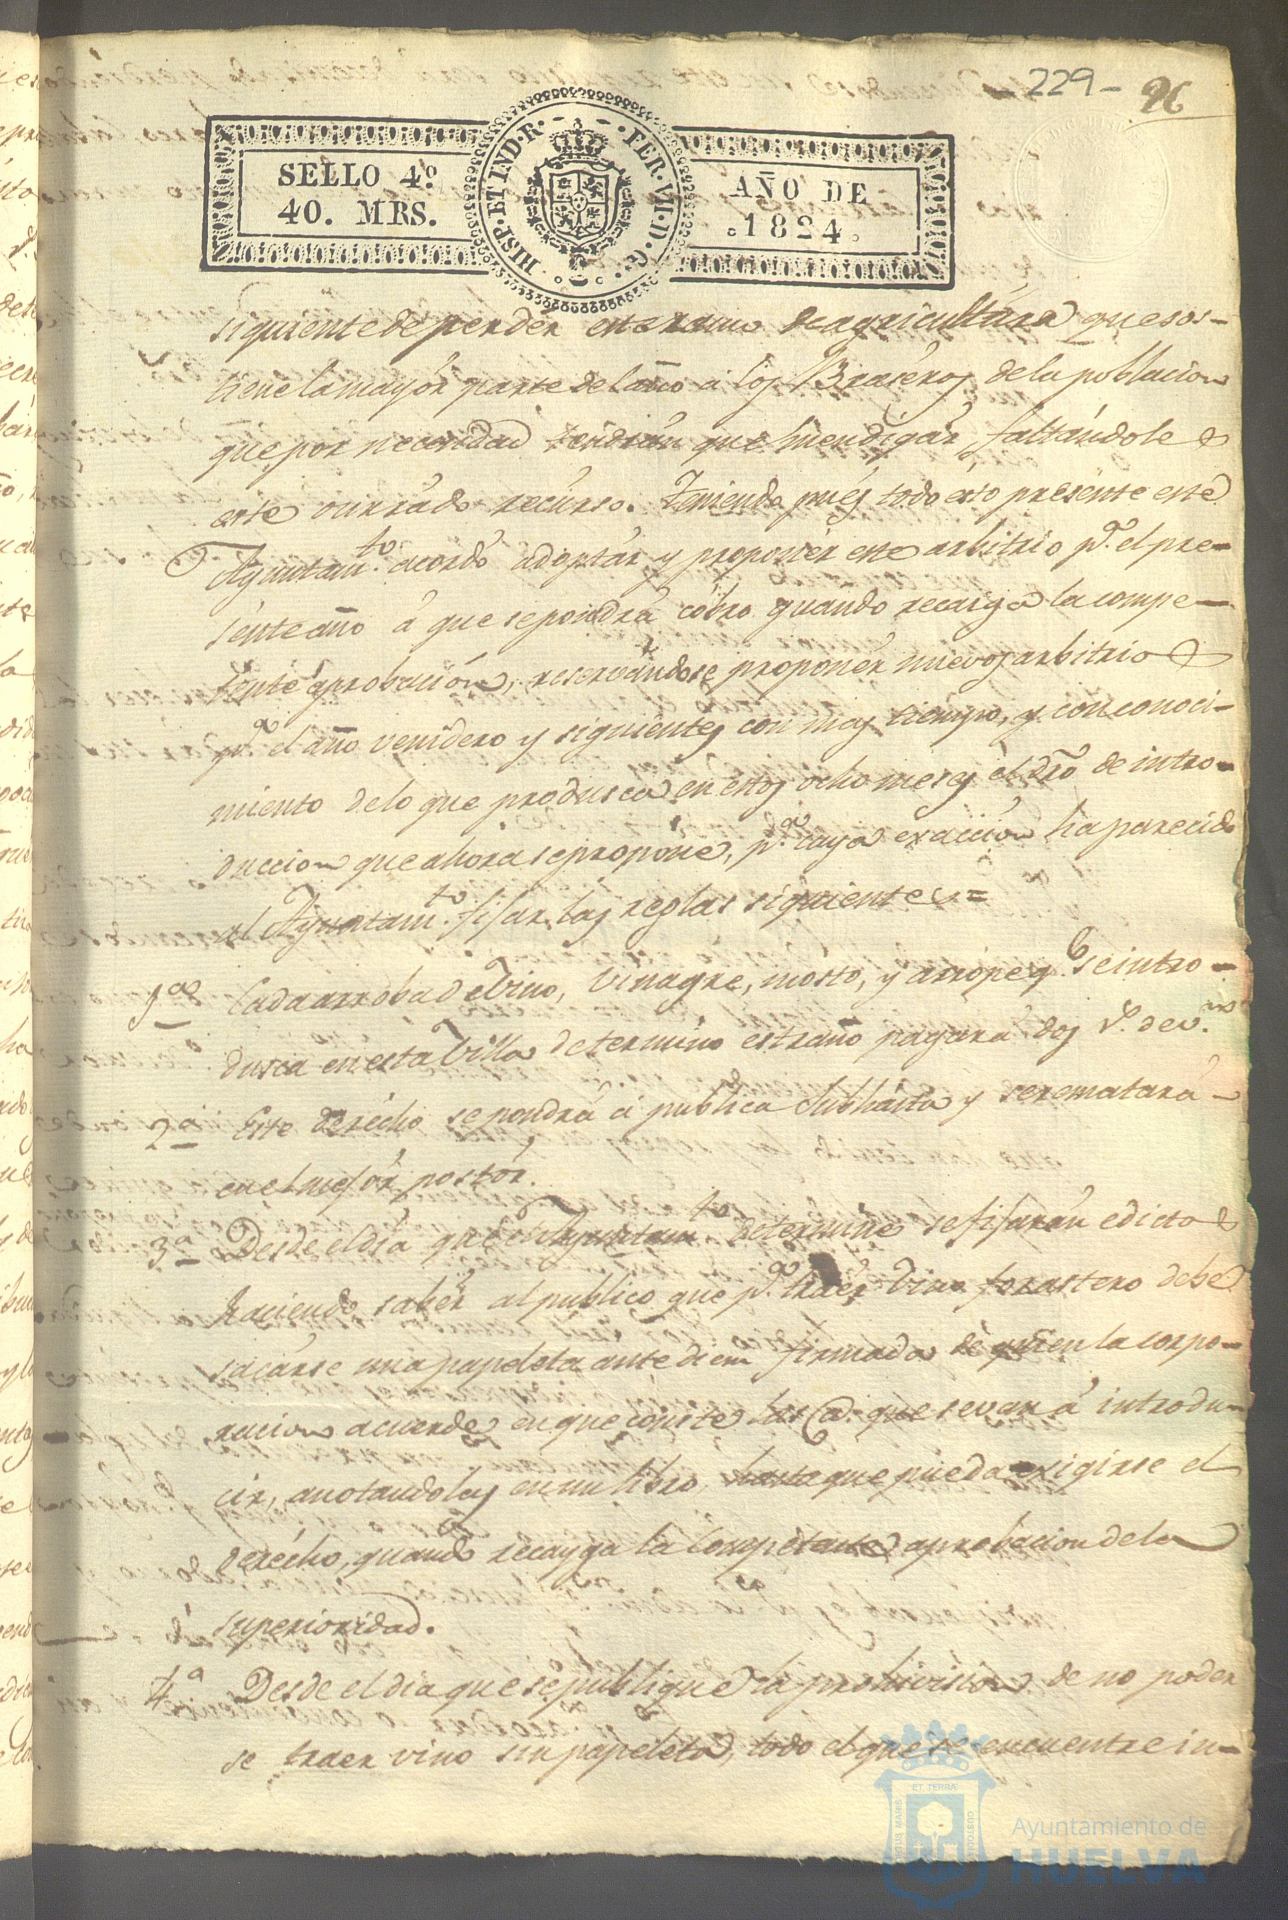 -229-
26
SELLO 4º
40. MRS.
HISP. ET IND. R. FER. VII. D. G.
AÑO DE
1824.
siguiente depender este ramo de agricultura que sos-
tiene la mayór parte del año á los Braséros de la poblacion
que por necesidad tendrán que mendigár, faltándole
este ourrado recurso. Teniendo pués todo esto presénte este
Ayuntam.to acordó adoptár y proponér este arbitrio p.a el pre-
sénte año á que se pondrá cóbro quando recaiga la compe-
tente aprobación, reservándose proponér nuevos arbitrios
p.a el año venidero y siguientes con mas tiempo, y con conoci-
miento de lo que produsca en estos ocho meses el dro de intro-
duccion que ahora se propóne, p.a cuya exacción ha parecido
al Ayuntam.to fijar las reglas siguientes=
1.a Cada arroba de Vino, Vinagre, mosto, y arrópe q.e se intro-
dusca en esta Villa de termino estraño pagará dos r.s de v.on
2.a Este derécho se pondrá á publica Subhásta y se rematará
en el mejór postór.
3.a Desde el dia que el Ayuntam.to determine se fijarán edictos
haciendo sabér al publico que p.a traér Vino forastero debe
sacárse una papeleta ante diem firmada de quien la corpo-
racion acuerde en que conste las @.s que se van á introdu-
cir, anotandolas en un libro, hasta que pueda exigirse el
derécho, quando recayga la Competente aprobacion de la
superioridad.
4.a Desde el dia que se publique la prohivision de no poder
se traer vino sin papeleta, todo el que se encuentre in-
ET TERRÆ
CUSTODIA
PORTUS MARIS
Ayuntamiento de
HUELVA